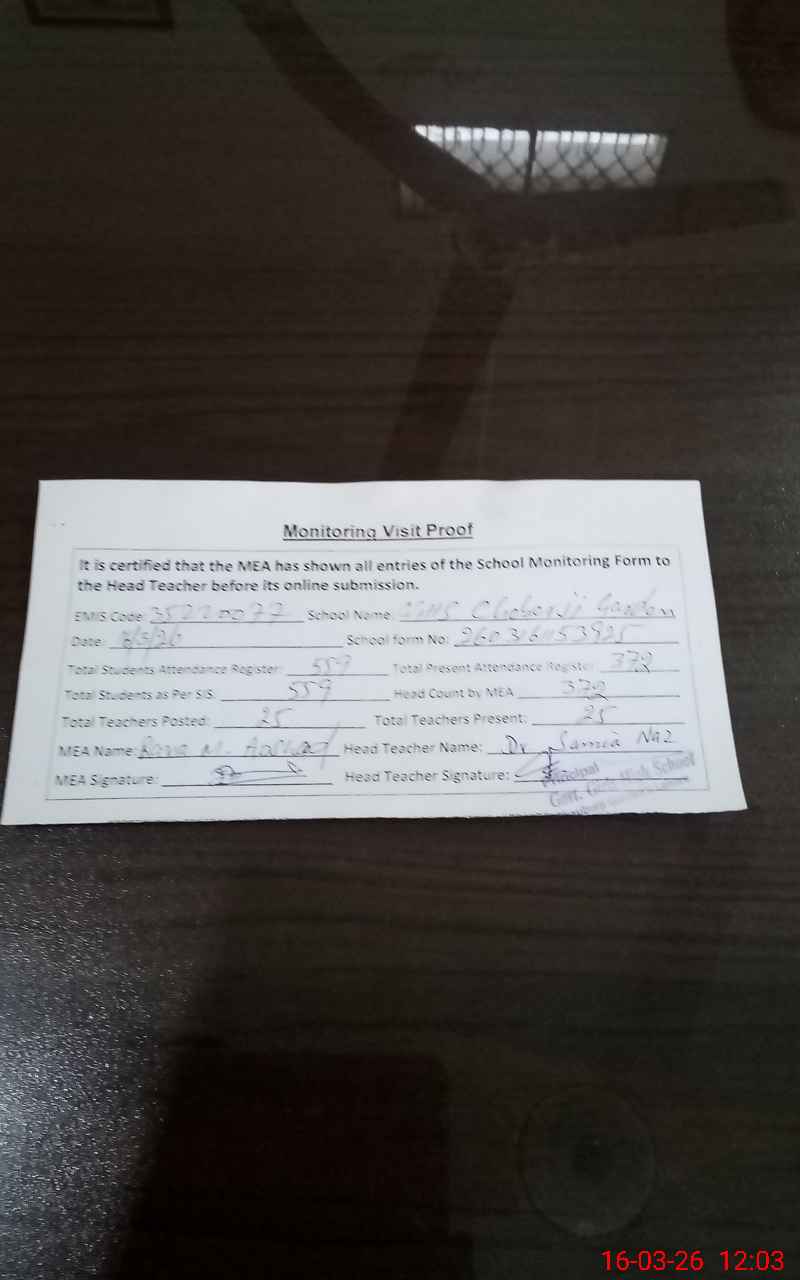 Monitoring Visit Proof
It is certified that the MEA has shown all entries of the School Monitoring Form to
the Head Teacher before its online submission.
EMIS Code: 35220077 School Name: Choberji Garden
Date: School form No: 2603161153925
Total Students Attendance Register: 559 Total Present Attendance Register 372
Total Students as Per SIS 559 Head Count by MEA 372
Total Teachers Posted: 25 Total Teachers Present: 25
MEA Name: Rana M. Aashad Head Teacher Name: Dr Samia Naz
MEA Signature: Head Teacher Signature:
Principal
Govt. Girls High School
16-03-26 12:03